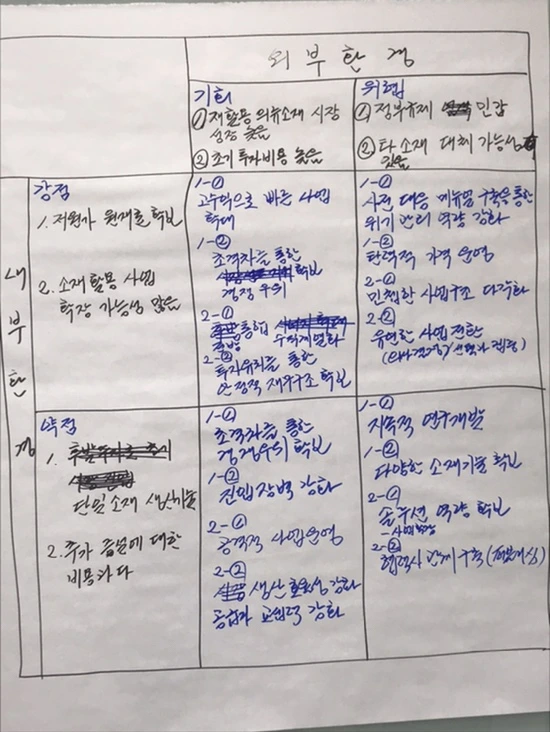 외부환경
기회
① 재활용 의류소재 시장
성장 높음
② 초기 투자비용 높음
위협
① 정부규제 민감
② 타소재 대체 가능성
있음
내부환경
강점
1. 저원가 원재료 확보
2. 소재 활용 사업
확장 가능성 많음
1-①
빠른 사업
확대
1-②
초격차를 통한
확보
경쟁우위
2-①
통합
수직계열화
2-②
투자유치를 통한
안정적 재무구조 확보
1-①
사전 대응 메뉴얼 구축을 통한
위기 관리 역량 강화
1-②
탄력적 가격 운영
2-①
민첩한 사업구조 다각화
2-②
유연한 사업전환
약점
1.
단일 소재 생산기술
2. 추가 증설에 대한
비용과다
1-①
초격차를 통한
경쟁우위 확보
1-②
진입장벽 강화
2-①
공격적 사업운영
2-②
생산 효율성 강화
공급자 교섭력 강화
1-①
지속적 연구개발
1-②
다양한 소재기술 확보
2-①
솔루션 역량 확보
2-②
협력사 관계 구축